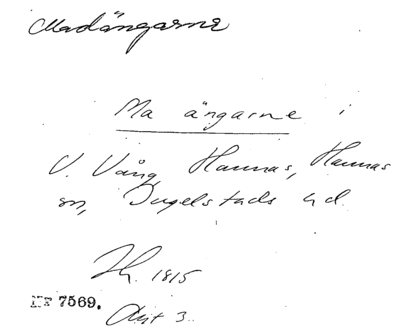 Madängarne
Ma ängarne i
V. Vång, Hannas, Hannas
sn, Ingelstads hd.
1815
NF 7569.
Akt 3